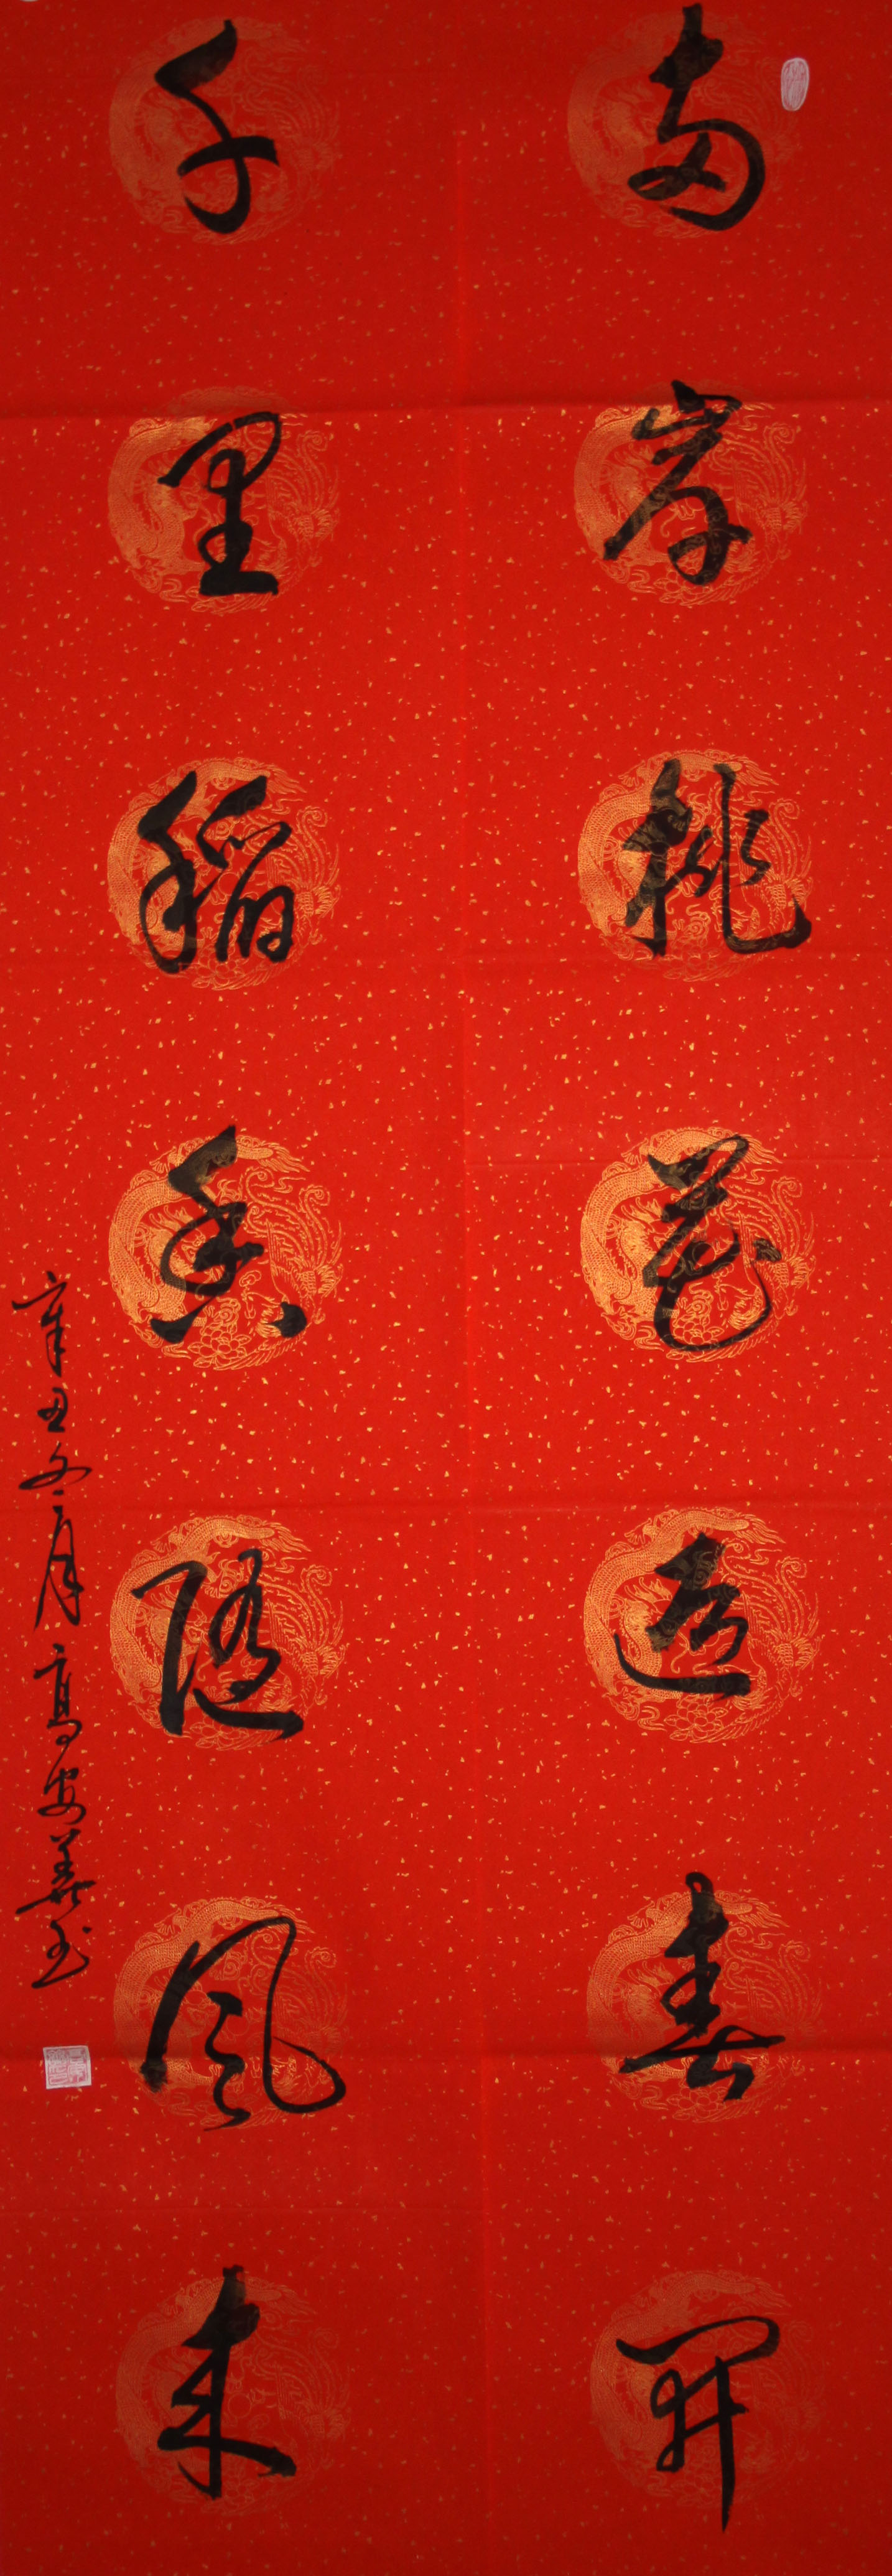 两岸桃花迎春开
千里稻香随风来
辛丑冬月高安美书